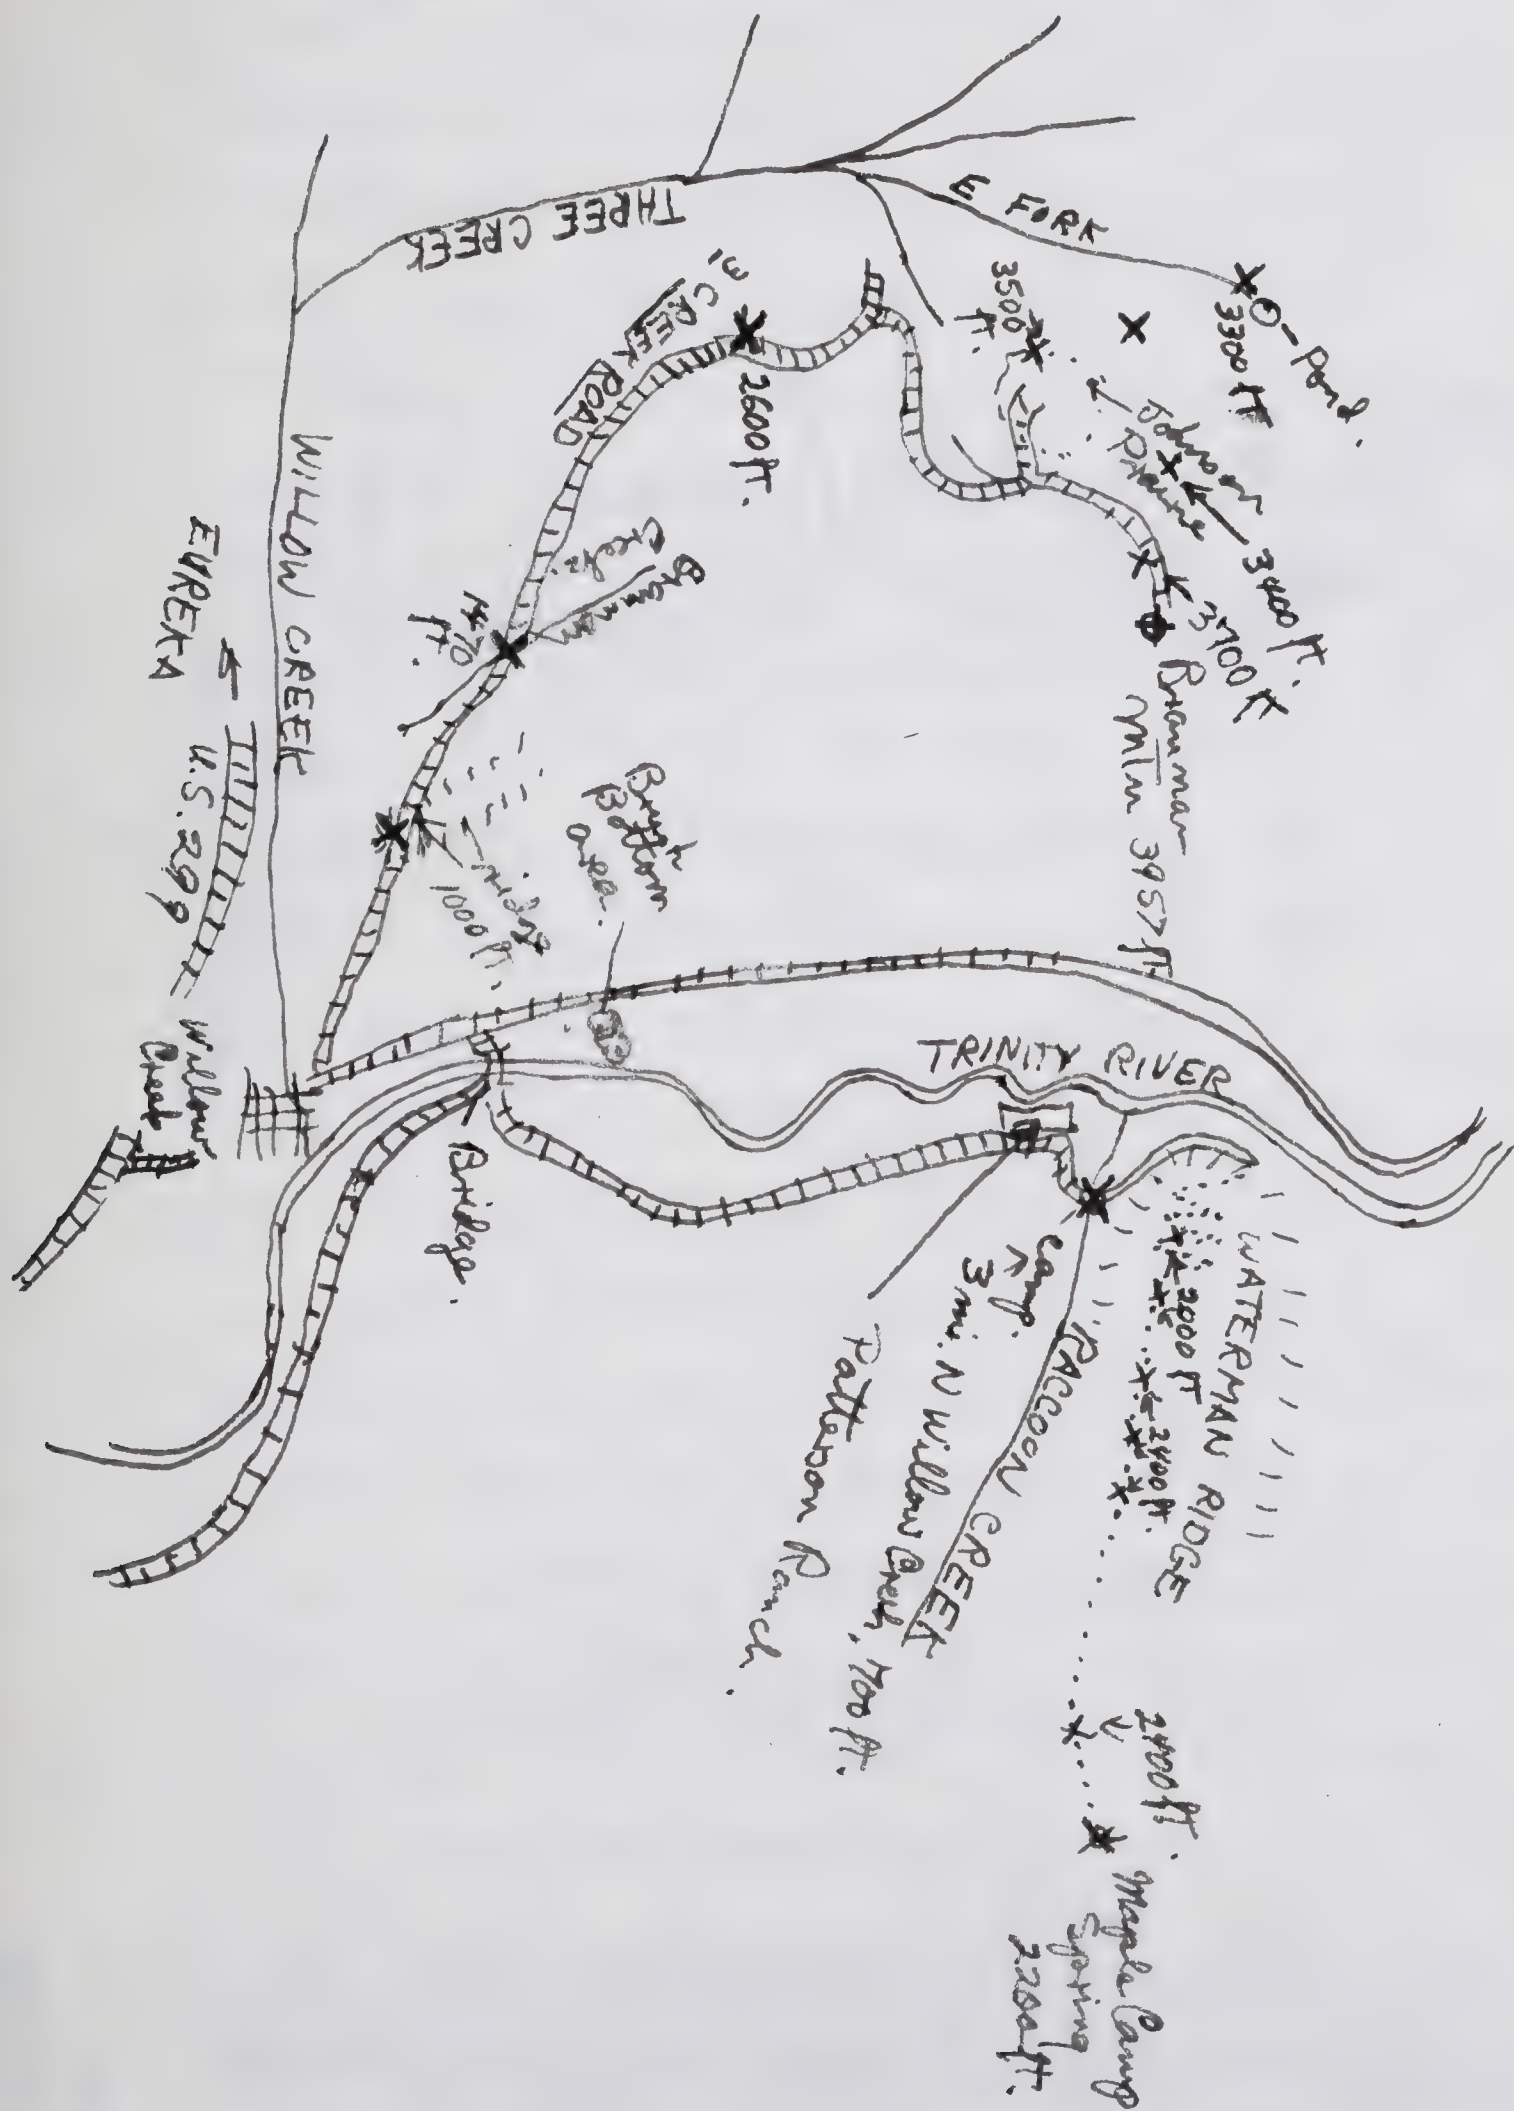 E FORK
THREE CREEK
Pond.
3300 ft
3500
ft.
3 CREEK ROAD
2600 ft.
Johnson
Prairie
3400 ft.
3700 ft
Brannan
Mtn 3957 ft.
Brannan
Creek.
1470
ft.
WILLOW CREEK
EUREKA
U.S. 299
Willow
Creek
ridge
1000 ft.
Brush
Bottom
area.
TRINITY RIVER
Bridge.
WATERMAN RIDGE
2000 ft
2400 ft.
RACCOON CREEK
Camp.
3 mi. N Willow Creek, 700 ft.
Patterson Ranch.
2400 ft.
Maple Camp
Spring
2200 ft.